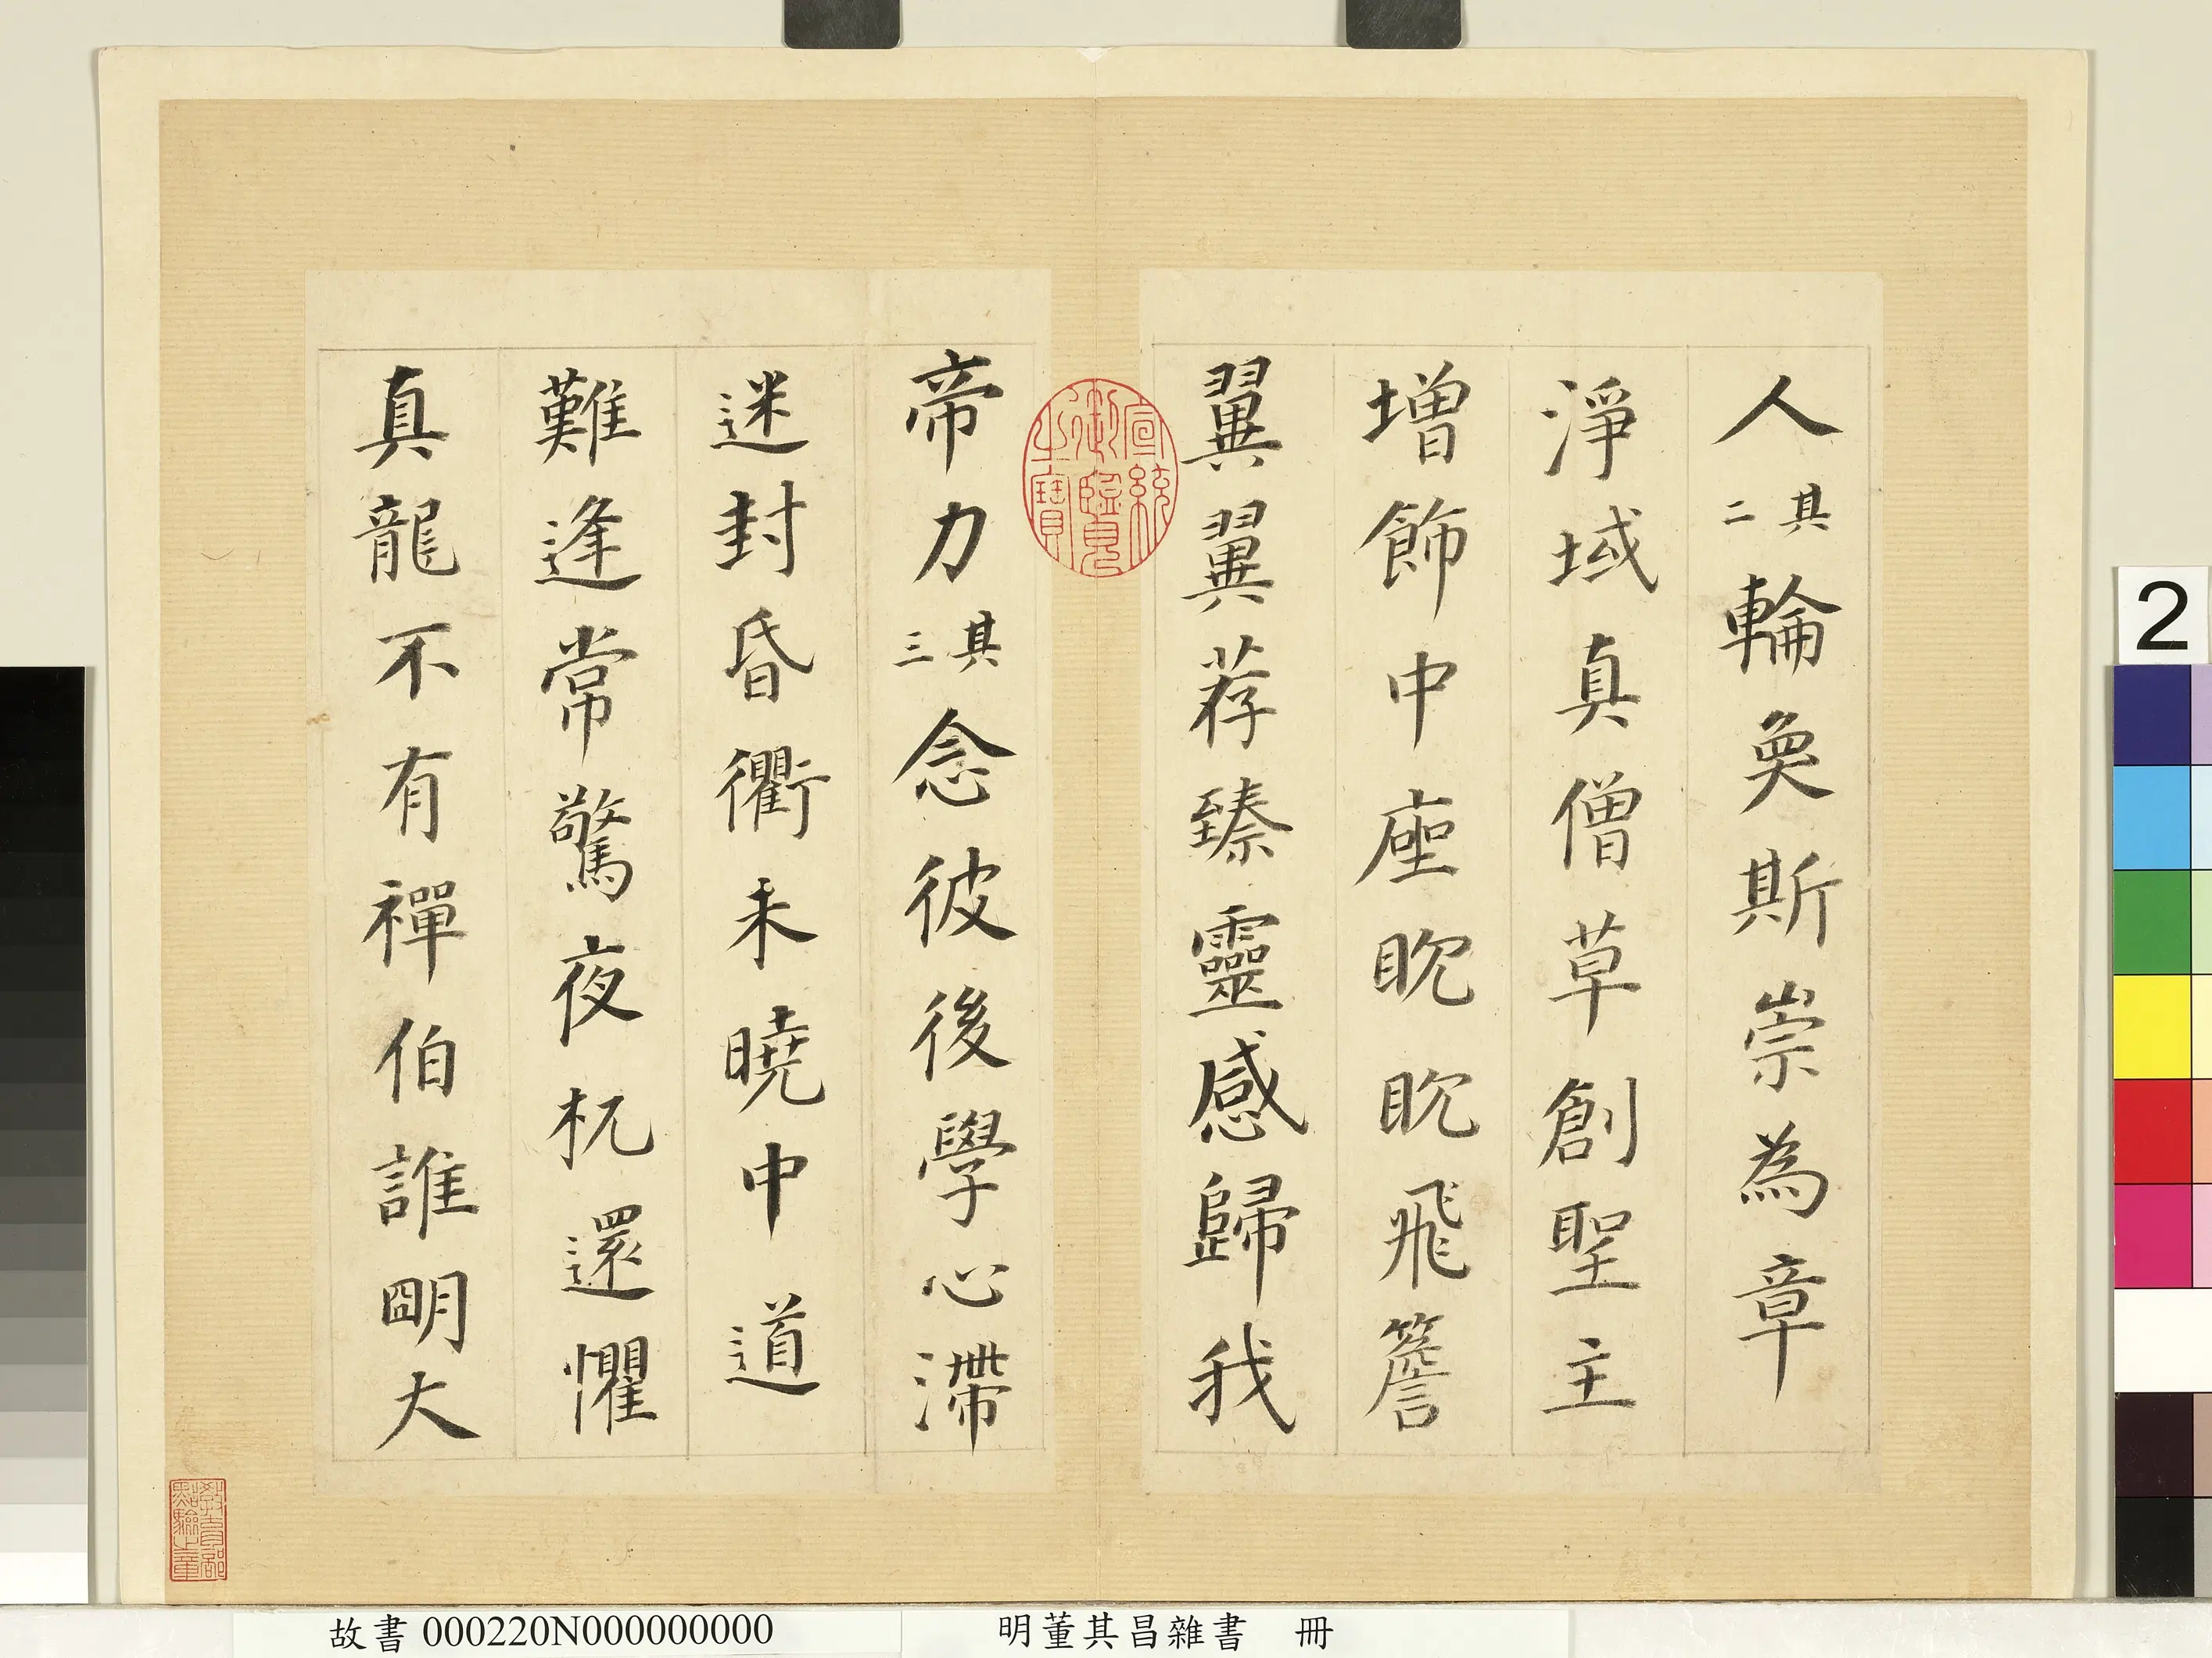 人其二輪奐斯崇為章
淨域真僧草創聖主
增飾中座眈眈飛簷
翼翼荐臻靈感歸我
帝力其三念彼後學心滯
迷封昏衢未曉中道
難逢常驚夜杌還懼
真龍不有禪伯誰明大
宣統御覽之寶
教育部點驗之章
2
故書000220N000000000
明董其昌雜書 冊